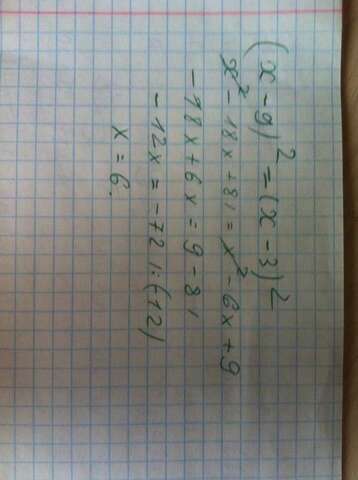 (x - 9)² = (x - 3)²
x² - 18x + 81 = x² - 6x + 9
- 18x + 6x = 9 - 81
- 12x = -72 | : (-12)
x = 6.